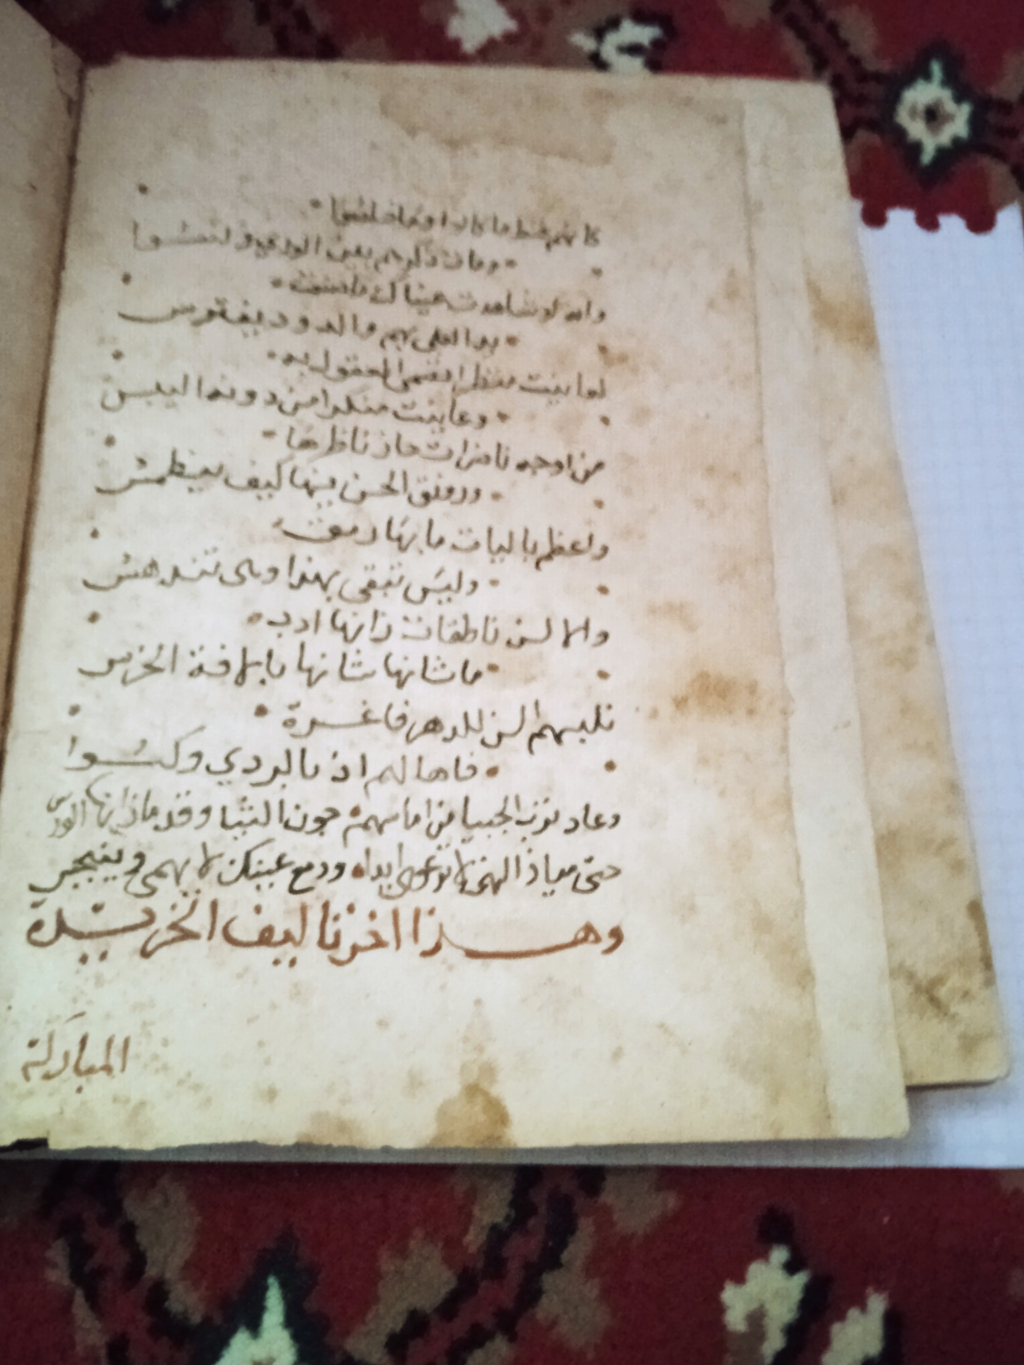 كانهم قط ما كانوا وما خلقوا
ومات ذكرهم بين الورى ونسوا
والله لو شاهدت عيناك ما صنعت
يد البلى بهم والدود يفترس
لعاينت منظرا يشجى العقول به
وعاينت منكرا من دونه البلس
من اوجه ناضرات حار ناظرها
ورونق الحسن منها كيف ينطمس
واعظم باليات ما بها رمق
وليس تبقى بهذا وهى تنتهس
والالسن ناطقات زانها ادب
ما شانها شانها بالافة الخرس
ثلبتهم السن للدهر فاغرة
فاها لهم اذ بالردي وكسوا
وعاد ترب الجبيا من اما سهم جون الثبا وقد ما زانها الورس
حتى م ياذا النهى لا ترعوي ابدا ودمع عينك لا يهمى وينبجس
وهذا اخر تاليف الخريدة
المباركة